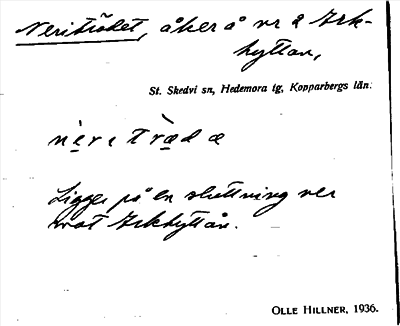 Neriträdet, åker å nr 2 Ark-
hyttan,
St. Skedvi sn, Hedemora tg, Kopparbergs län.
nèritrædæ
Ligger på en sluttning ner
mot Arkhyttån.
OLLE HILLNER, 1936.